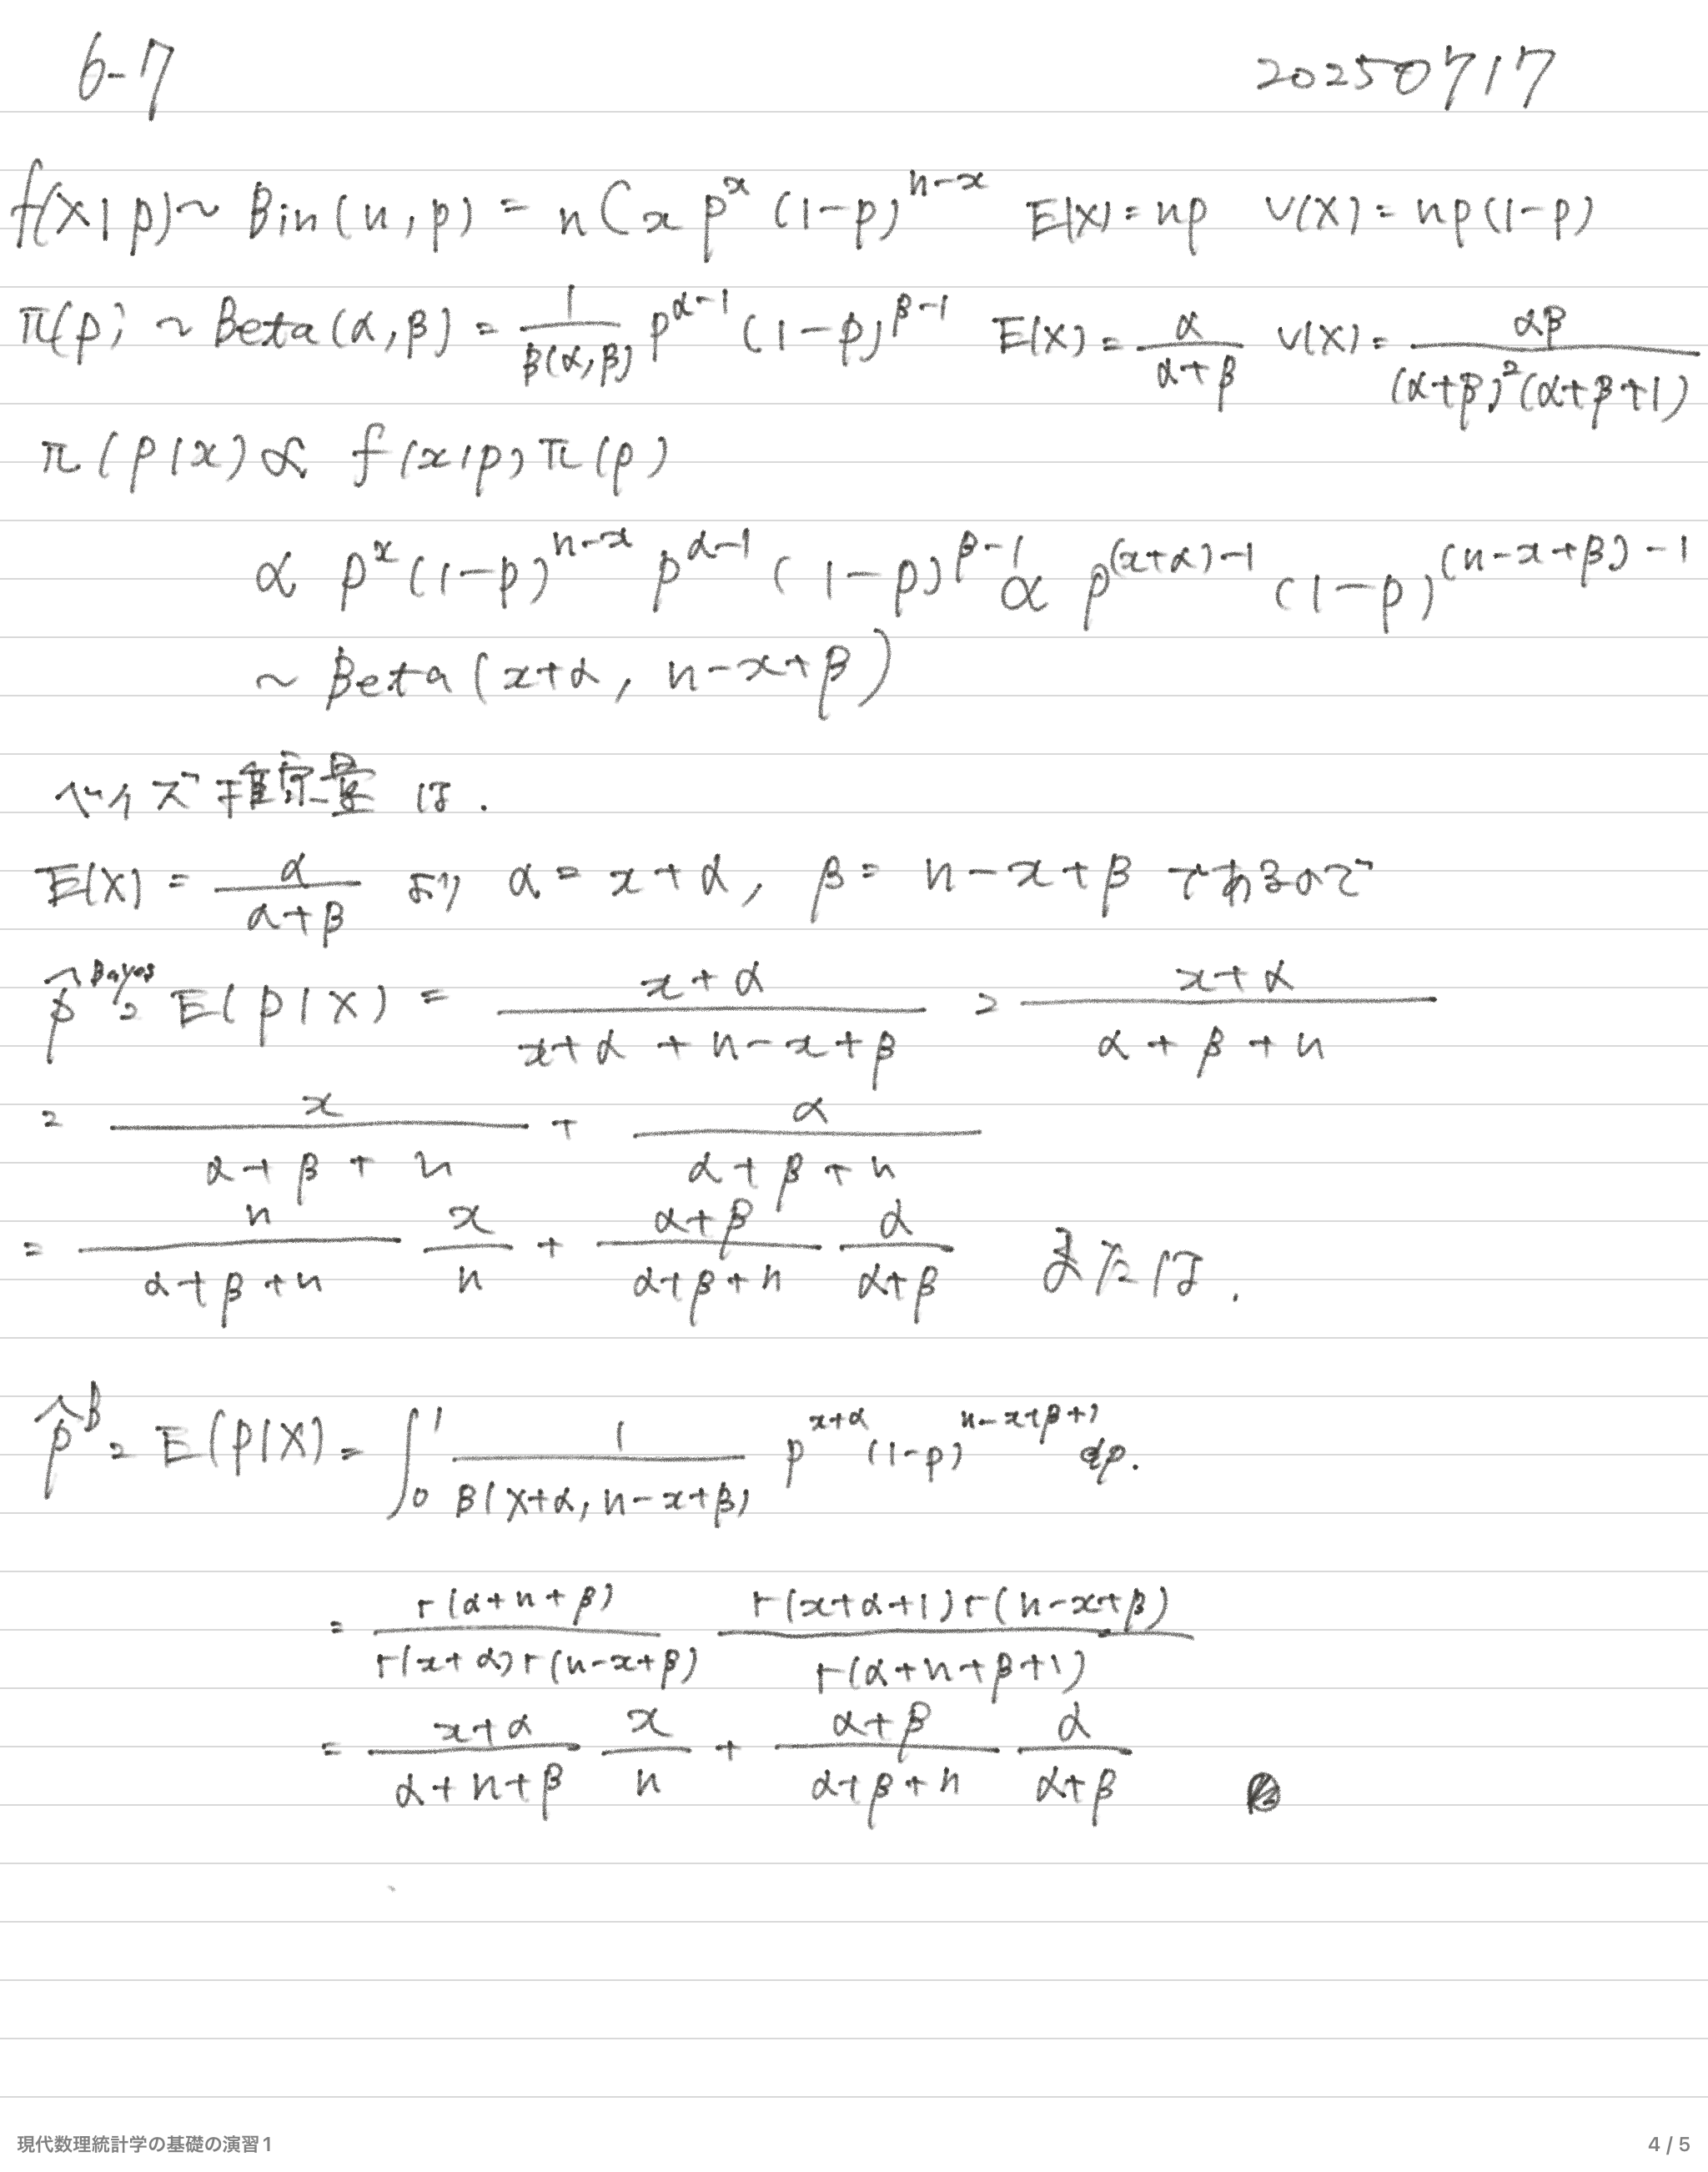 6-7 20250717
f(X|p) ~ Bin(n,p) = nCx p^x (1-p)^{n-x} E(X)=np V(X)=np(1-p)
π(p) ~ Beta(α,β) = \frac{1}{B(α,β)} p^{α-1} (1-p)^{β-1} E(X)=\frac{α}{α+β} V(X)=\frac{αβ}{(α+β)^2(α+β+1)}
π(p|x) ∝ f(x|p)π(p)
∝ p^x (1-p)^{n-x} p^{α-1} (1-p)^{β-1} ∝ p^{(x+α)-1} (1-p)^{(n-x+β)-1}
~ Beta(x+α, n-x+β)
ベイズ推定量は.
E(X) = \frac{α}{α+β} より α = x+α, β = n-x+β であるので
\hat{p}^{Bayes} = E(p|X) = \frac{x+α}{x+α+n-x+β} = \frac{x+α}{α+β+n}
= \frac{x}{α+β+n} + \frac{α}{α+β+n}
= \frac{n}{α+β+n} \frac{x}{n} + \frac{α+β}{α+β+n} \frac{α}{α+β} または.
\hat{p}^B = E(p|X) = ∫_0^1 \frac{1}{B(x+α, n-x+β)} p^{x+α} (1-p)^{n-x+β+1} dp.
= \frac{Γ(α+n+β)}{Γ(x+α)Γ(n-x+β)} \frac{Γ(x+α+1)Γ(n-x+β)}{Γ(α+n+β+1)}
= \frac{x+α}{α+n+β} \frac{x}{n} + \frac{α+β}{α+β+n} \frac{α}{α+β}
現代数理統計学の基礎の演習1 4 / 5